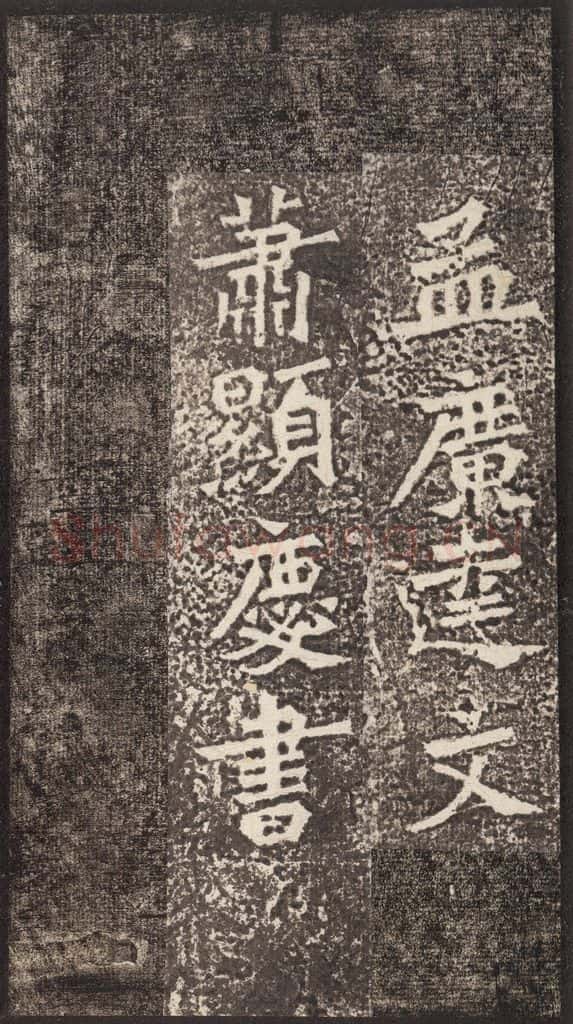 孟廣達文
蕭顯慶書
Shufawang.CN